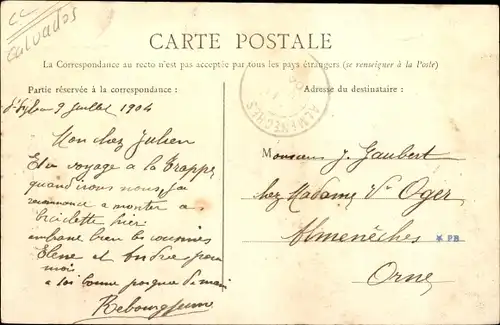 CC
Calvados
CARTE POSTALE
La Correspondance au recto n'est pas acceptée par tous les pays étrangers (se renseigner à la Poste)
Partie réservée à la correspondance :
Adresse du destinataire :
9 Juillet 1904
ALMENECHES
Mon cher Julien
Et voyage a la Trappe
quand irons nous, j'ai
recommencé a monter a
biciclette hier.
embrasse bien les cousines
Elene et Andre, pour
moi
a toi bonne poignée de main
Monsieur J. Gaubert
chez Madame Ve Oger
Almenêches
* PB
Orne